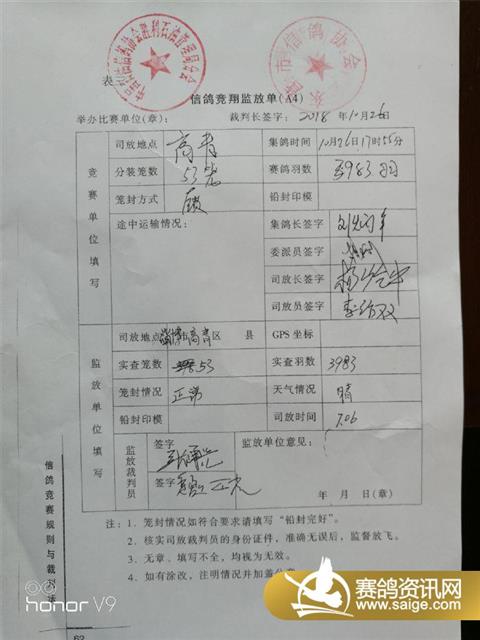 表三
信鸽竞翔监放单(A4)
举办比赛单位(章): 裁判长签字: 2018年10月26日
竞赛单位填写
司放地点 高青 集鸽时间 10月26日17时55分
分装笼数 53笼 赛鸽羽数 3983羽
笼封方式 铅封印模
途中运输情况: 集鸽长签字
委派员签字
司放长签字
司放员签字
监放单位填写
司放地点 淄博市高青区 县 GPS坐标
实查笼数 53 实查羽数 3983
笼封情况 正常 天气情况 晴
铅封印模 司放时间 7.06
监放裁判员 签字 监放单位意见:
签字
年 月 日(章)
注:1. 笼封情况如符合要求请填写“铅封完好”。
2. 核实司放裁判员的身份证件,准确无误后,监督放飞。
3. 无章、填写不全,均视为无效。
4. 如有涂改,注明情况并加盖公章
信鸽竞赛规则与裁判法
62
honor V9
赛鸽资讯网
www.saige.com